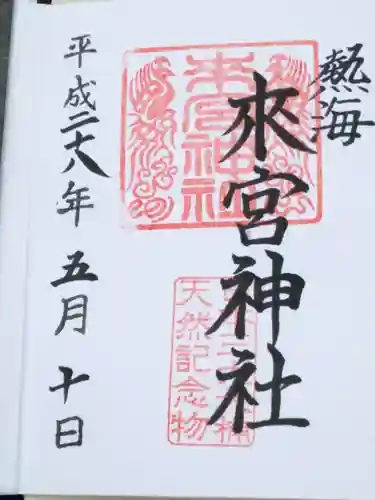 熱海
來宮神社
来宮神社
天然記念物
平成二十八年五月十日